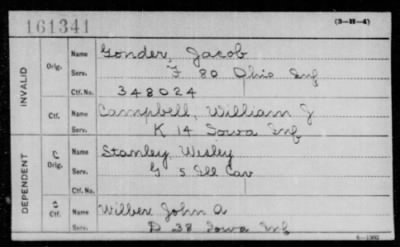 161341
(3-H-4)
INVALID
Orig.
Name Gonder, Jacob
Serv. F 80 Ohio Inf
Ctf. No. 348024
Ctf.
Name Campbell, William J
Serv. K 14 Iowa Inf
DEPENDENT
C
Orig.
Name Stanley, Wesley
Serv. G 5 Ill Cav
Ctf. No.
Ctf.
Name Wilber John A
Serv. D 38 Iowa Inf